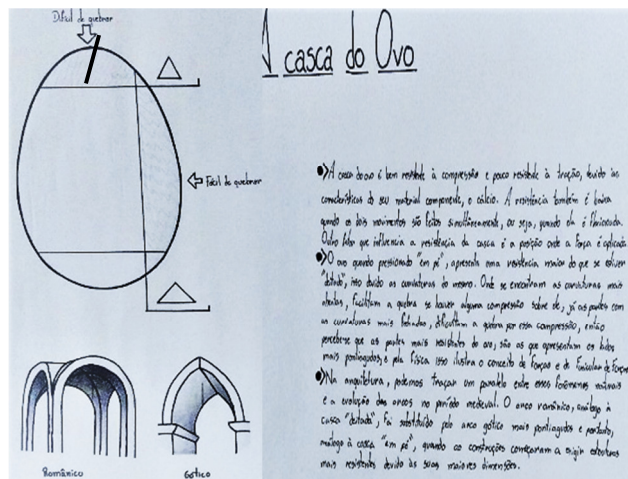 Difícil de quebrar
A casca do Ovo
Fácil de quebrar
A casca do ovo é bem resistente à compressão e pouco resistente à tração, devido às
características do seu material componente, o cálcio. A resistência também é baixa
quando os dois movimentos são feitos simultâneamente, ou seja, quando ela é flexionada.
Outro fator que influencia a resistência da casca é a posição onde a força é aplicada
O ovo quando pressionado "em pé", apresenta uma resistência maior do que se estiver
"deitado", isso devido as curvaturas do mesmo. Onde se encontram as curvaturas mais
abertas, facilitam a quebra se houver alguma compressão sobre ele, já as partes com
as curvaturas mais fechadas, dificultam a quebra por essa compressão, então
percebe-se que as partes mais resistentes do ovo, são as que apresentam os lados
mais pontiagudos, e pela física isso ilustra o conceito de Forças e de Funicular de Forças
Na arquitetura, podemos traçar um paralelo entre esses fenômenos naturais
e a evolução dos arcos no período medieval. O arco românico, análogo à
casca "deitada", foi substituído pelo arco gótico mais pontiagudo e portanto,
análogo à casca "em pé", quando as construções começaram a exigir estruturas
mais resistentes devido às suas maiores dimensões.
Românico
Gótico